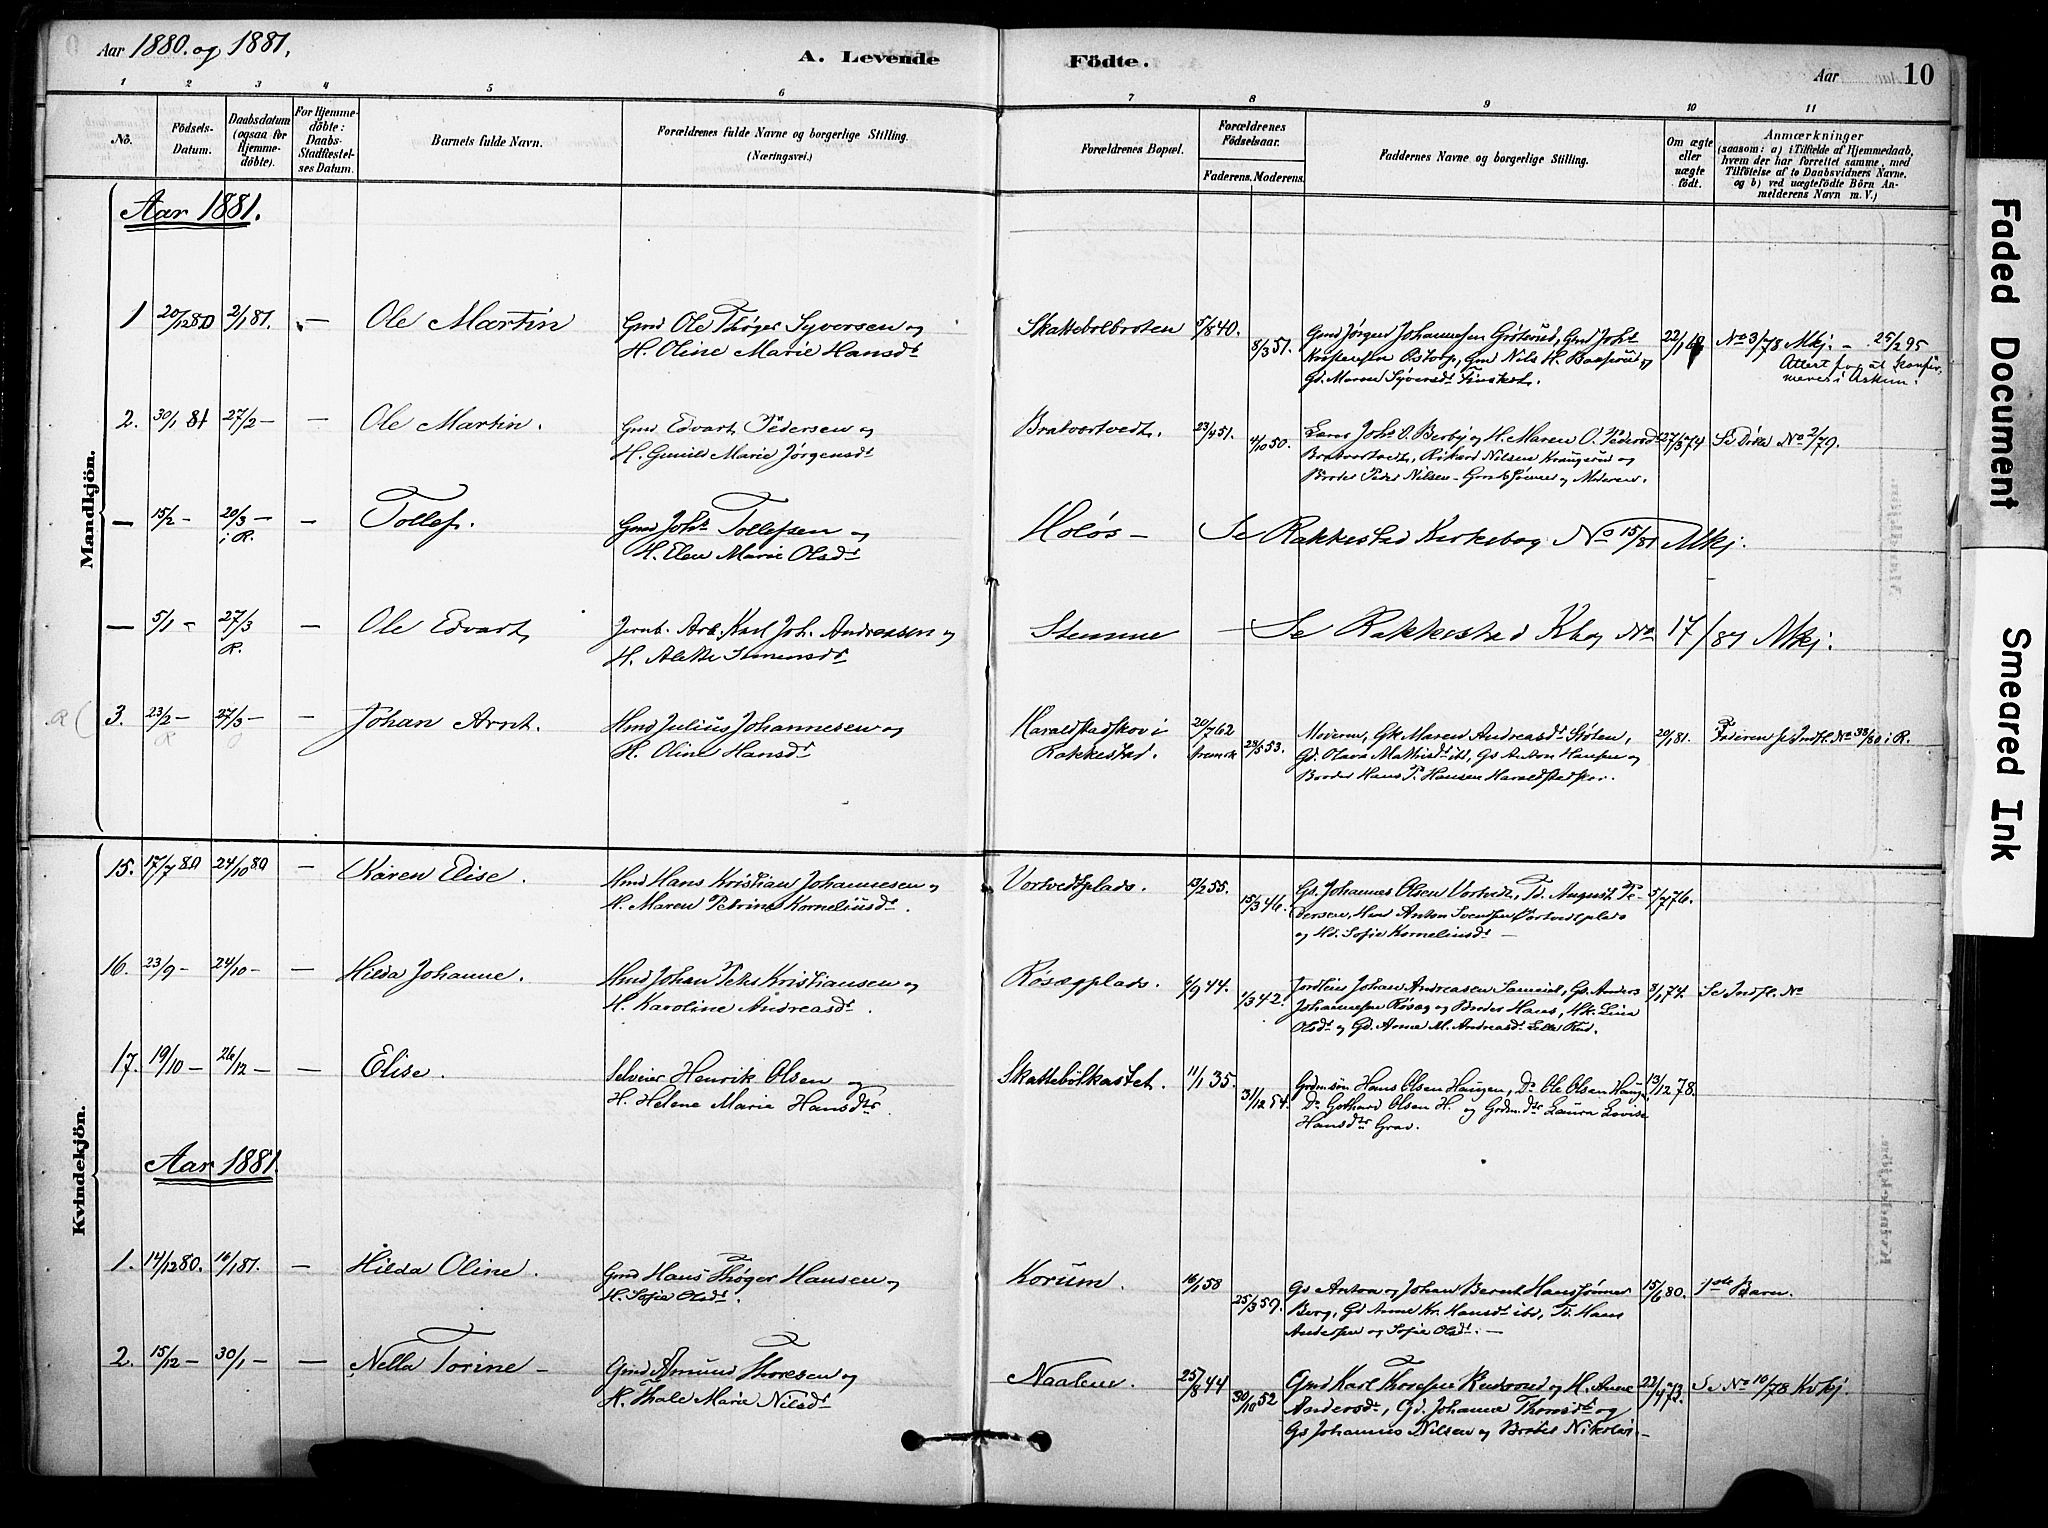 Aar 1880. og 1881.
A. Levende Födte.
Aar 10
1 2 3 4 5 6 7 8 9 10 11
No.
Födsels-
Datum.
Daabsdatum
(ogsaa for
Hjemme-
döbte).
For Hjemme-
döbte:
Daabs-
Stadfæstel-
ses Datum.
Barnets fulde Navn.
Forældrenes fulde Navne og borgerlige Stilling.
(Næringsvei.)
Forældrenes Bopæl.
Forældrenes
Födselsaar.
Faderens. Moderens.
Faddernes Navne og borgerlige Stilling.
Om ægte
eller
uægte
födt.
Anmærkninger
(saasom: a) i Tilfælde af Hjemmedaab,
hvem der har forrettet samme, med
Tilföielse af to Daabsvidners Navne.
og b) ved uægtefödte Börn An-
melderens Navn m. V.)
Mandkjön.
Aar 1881.
1 20/12 80 2/1 81. — Ole Martin
Gmd Ole Thøger Syversen og
H. Oline Marie Hansdt
Skattebølbraten 5/8 40. 8/3 51.
Gmd Jørgen Johannesen Grötsrud, Gmd Johs
Nils H.
Gd. Maren Syversdt
22/1
No 3/78 Mkj. — 25/2 95
Attest for at konfir-
meres i Askim.
2. 30/1 81 27/2 — — Ole Martin.
Gmd Edvart Pedersen og
H. Gunild Marie Jørgensdt
Bratvortvedt. 23/4 51. 4/10 50.
Johs O. Berby og H. Maren O. Pedersdt
Rikard Nilsen Krangerud og
Broder Peder Nilsen — og Moderen.
27/3 74
Se Dito No 2/79.
— 15/2 — 20/3 — — Tollef.
i R.
Gmd Johs Tollefsen og
H. Elen Marie Olsdt
Holøs — Se Rakkestad Kirkebog No 15/81 Mkj.
— 5/1 — 27/3 — Ole Edvart
R.
Jernb. Arb. Karl Joh. Andreassen og
H. Alette Simensdt
Stemme — Se Rakkestad Kbog No 17/81 Mkj.
R ( 3. 23/2 — 27/3 — — Johan Arnt.
R
Hmd Julius Johannesen og
H. Oline Hansdt
Haraldstadskov i
Rakkestad.
20/7 62
53.
Moderen, Gk. Maren Andreasdt Stølen,
Gd. Olava Mathisdt ibd, Gs Anton Hansen og
Broder Hans T. Hansen Haraldstadskov.
20/1 81.
Faderen se Indfl. No 38/80 i R.
Kvindekjön.
15. 17/7 80 24/10 80 — Karen Elise.
Hmd Hans Kristian Johannesen og
H. Maren Petrine Korneliusdt.
Vortvedtplads. 13/2 55. 15/3 46.
Gs. Johannes Olsen Vortvedt, Td. August Pe-
dersen, Hmd Anton Svendsen Vortvedtplads
og Hd. Sofie Korneliusdt —
5/7 76.
16. 23/9 — 24/10 — — Hilda Johanne.
Hmd Johan Peter Kristiansen og
H. Karoline Andreasdt.
Røsægplads. 6/9 44. 9/3 42.
Johan Andreasen Gs. Anders
Johannesen Røsæg og Broder Hans, Hk. Lina
Olsdt og Gd. Anne M. Andreasdt Lille Rud.
3/1 74.
Se Indfl. No
17. 19/10 — 26/12 — — Elise.
Selveier Henrik Olsen og
H. Helene Marie Hansdtr.
Skattebölkastet. 11/1 35. 31/12 54.
Grdmsön Hans Olsen Haugen, Do Ole Olsen Haugen
Do Gothard Olsen H. og Grdm.dtr Laura Lovise
Hansdtr Grav.
13/12 78.
Aar 1881.
1. 14/12 80. 16/1 81. — Hilda Oline.
Gmd Hans Thøger Hansen og
H. Sofie Olsdt.
Korum. 16/1 58 25/3 59.
Gs Anton og Johan Bernt Hanssønner
Berg, Gd Anne Kr. Hansdt ibd, Ts. Hans
Andersen og Sofie Olsdt. —
15/6 80.
1ste Barn.
2. 15/12 — 30/1 — — Nella Torine —
Gmd Amund Thoresen og
H. Thale Marie Nilsdt
Naalene. 25/8 44 30/10 52
Gmd Karl Thoresen Rudsrud og H. Anne
Andersdt, Gd. Johanne Thoresdt og
Gs Johannes Nilsen og Broder Nikolai. —
22/4 73.
Se No 10/78 Kvkj.
Faded Document
Smeared Ink